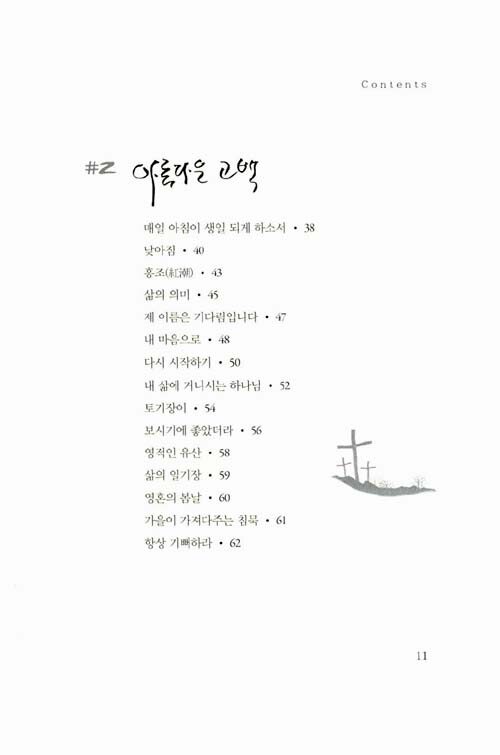 Contents
#2 아름다운 고백
매일 아침이 생일 되게 하소서 • 38
낮아짐 • 40
홍조(紅潮) • 43
삶의 의미 • 45
제 이름은 기다림입니다 • 47
내 마음으로 • 48
다시 시작하기 • 50
내 삶에 거니시는 하나님 • 52
토기장이 • 54
보시기에 좋았더라 • 56
영적인 유산 • 58
삶의 일기장 • 59
영혼의 봄날 • 60
가을이 가져다주는 침묵 • 61
항상 기뻐하라 • 62
11